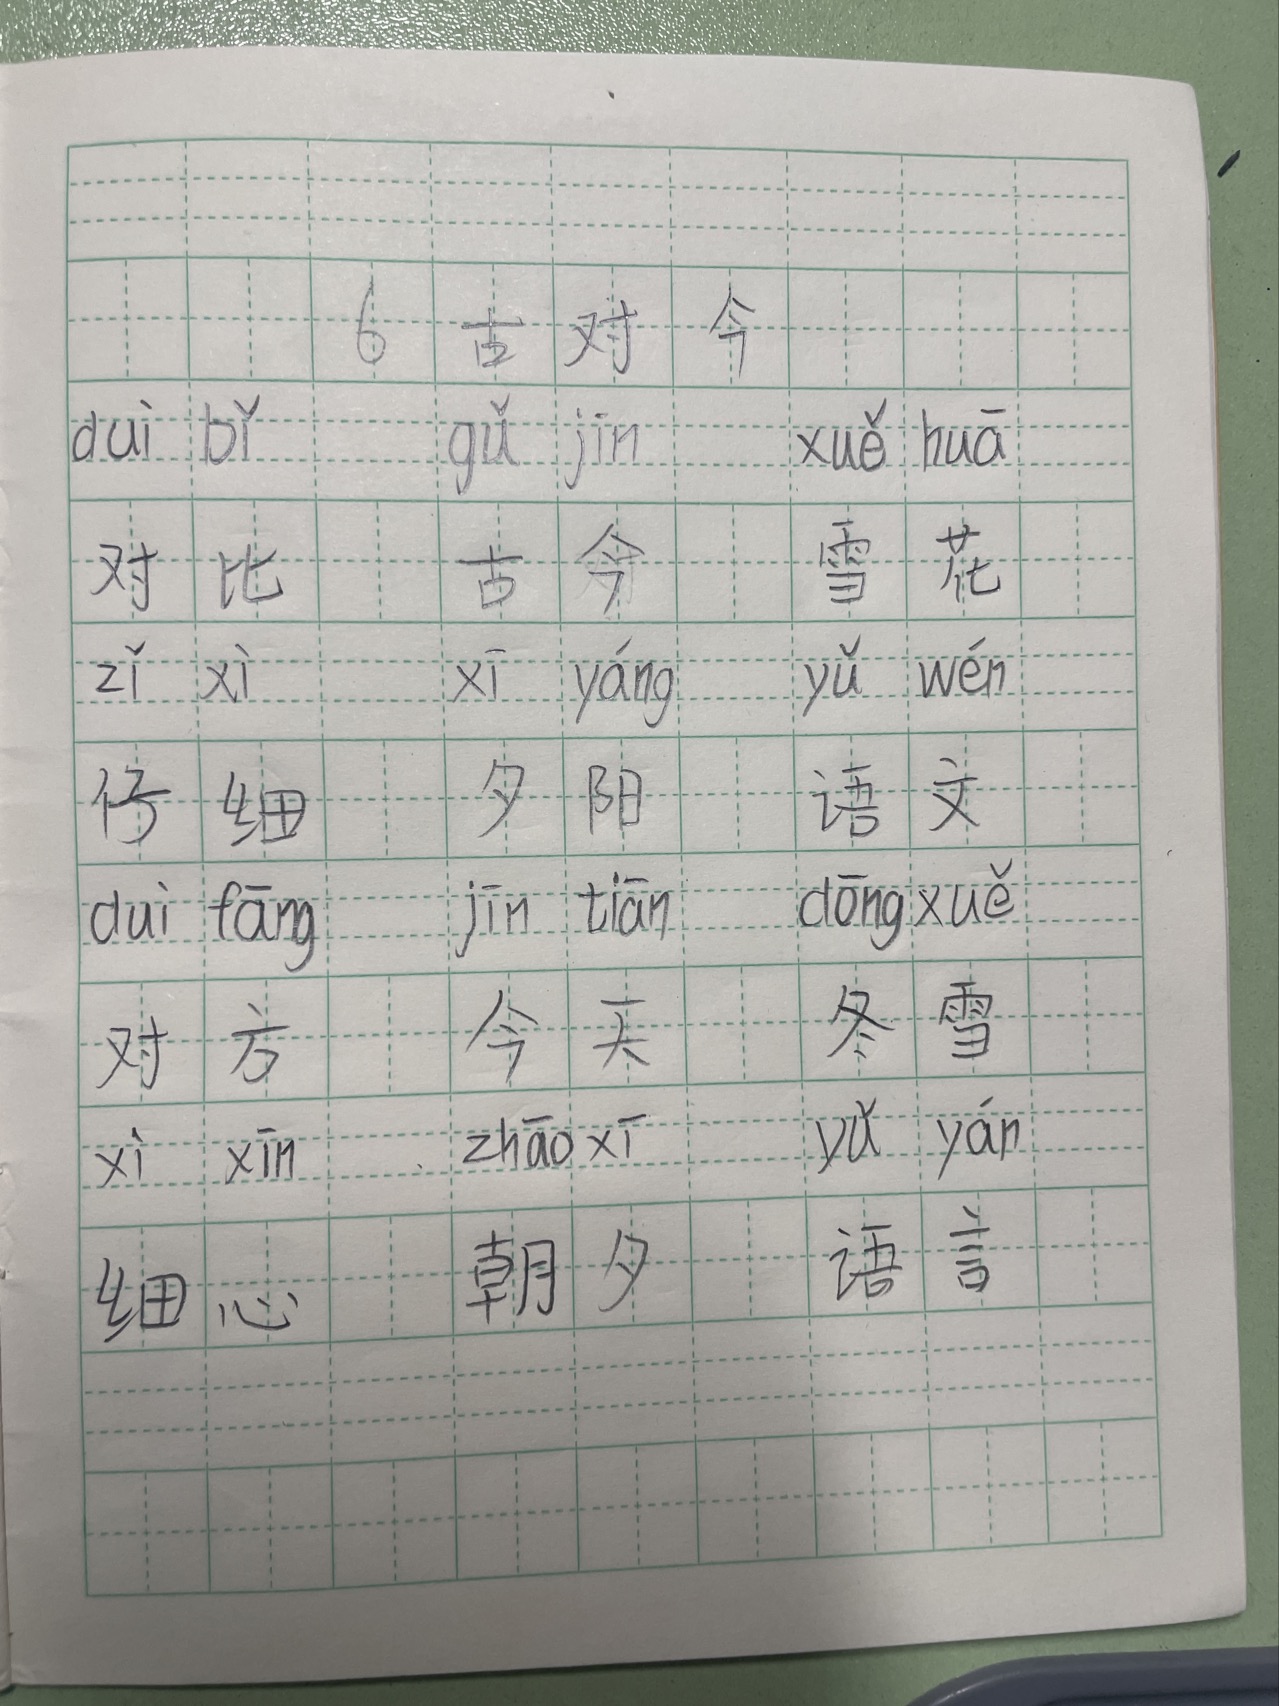 6 古对今
duì bǐ gǔ jīn xuě huā
对比 古今 雪花
zǐ xì xī yáng yǔ wén
仔细 夕阳 语文
duì fāng jīn tiān dōng xuě
对方 今天 冬雪
xì xīn zhāo xī yǔ yán
细心 朝夕 语言